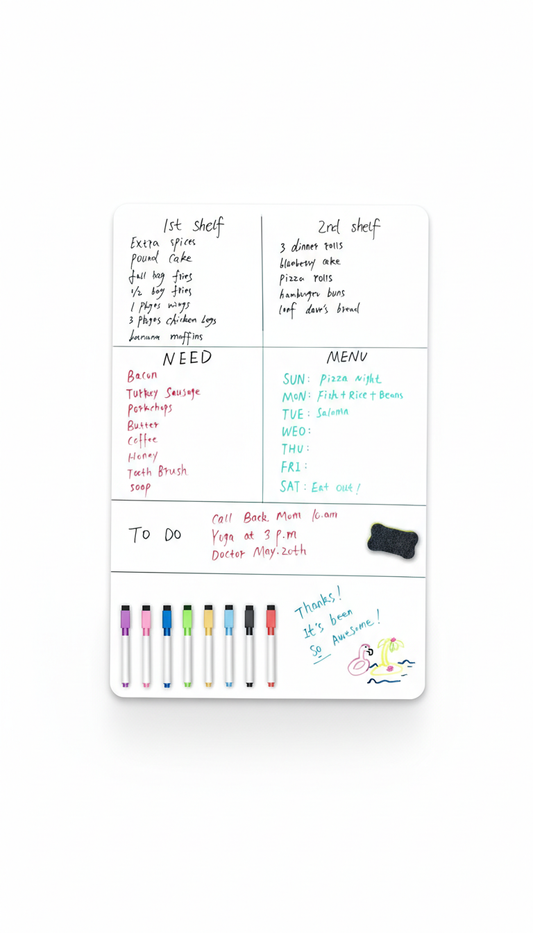 1st shelf
Extra spices
pound cake
full bag fries
1/2 bag fries
1 pkges wings
3 pkges chicken legs
banana muffins
2nd shelf
3 dinner rolls
blueberry cake
pizza rolls
hamburger buns
loaf dave's bread
NEED
Bacon
Turkey Sausage
Porkchops
Butter
Coffee
Honey
Tooth Brush
soap
MENU
SUN: Pizza night
MON: Fish + Rice + Beans
TUE: Salomn
WED:
THU:
FRI:
SAT: Eat out!
TO DO
Call Back Mom 10.am
Yoga at 3 p.m
Doctor May.20th
Thanks!
It's been
So Awesome!